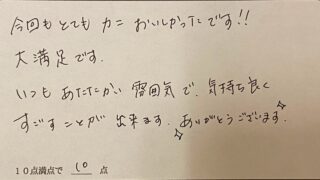 今回もとてもカニおいしかったです!!
大満足です.
いつもあたたかい雰囲気で.気持ち良く
すごすことが出来ます.ありがとうございます.
10点満点で 10 点